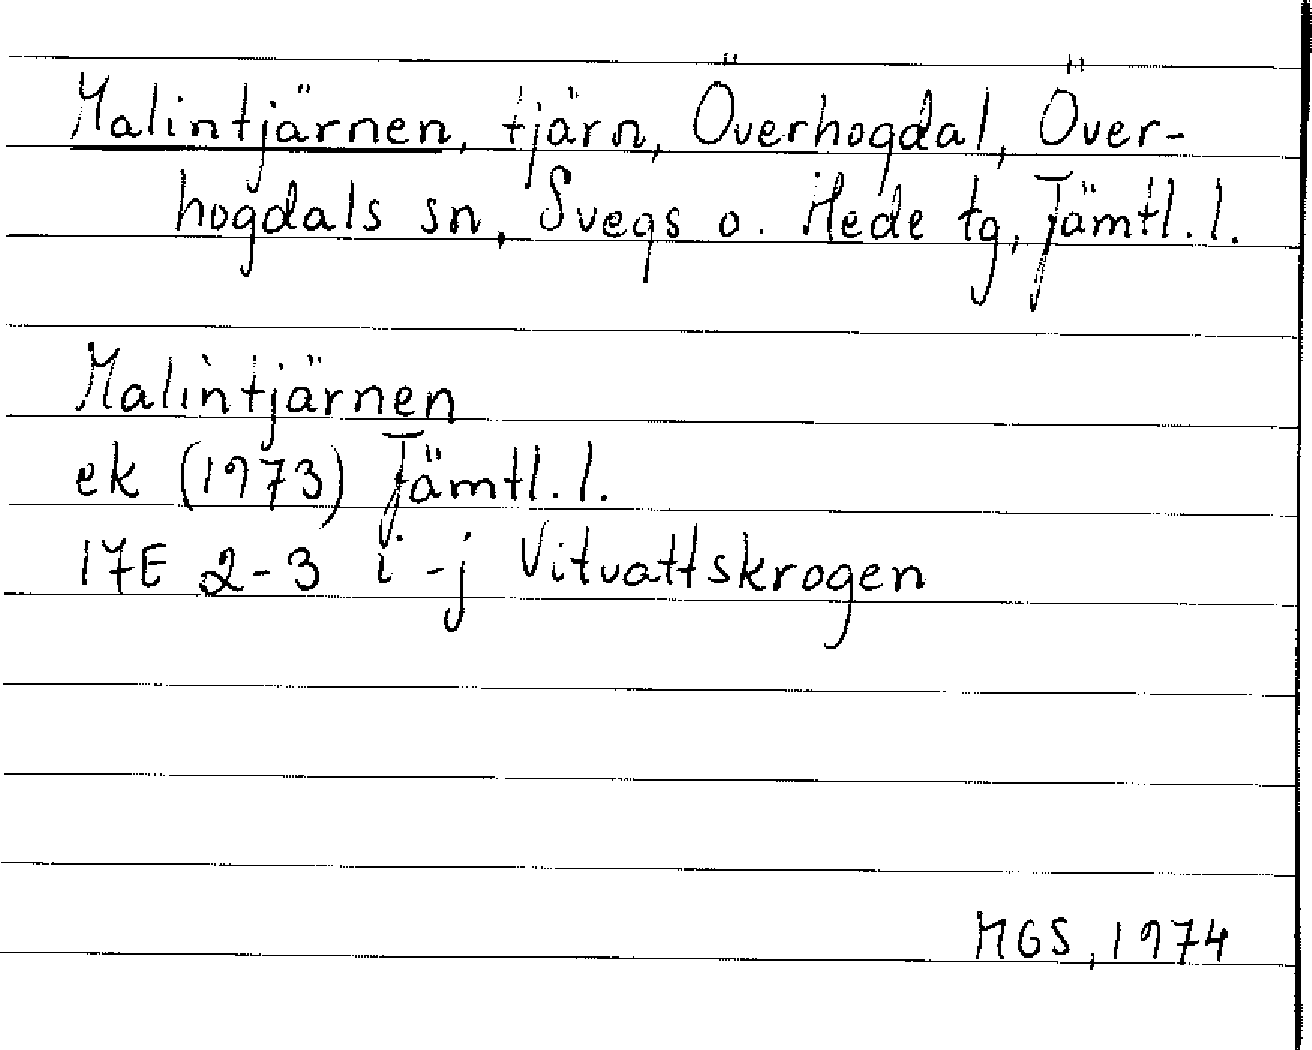 Malintjärnen, tjärn, Överhogdal, Över-
hogdals sn, Svegs o. Hede tg, Jämtl.l.
Malintjärnen
ek (1973) Jämtl.l.
17E 2-3 i-j Vitvattskrogen
MGS, 1974